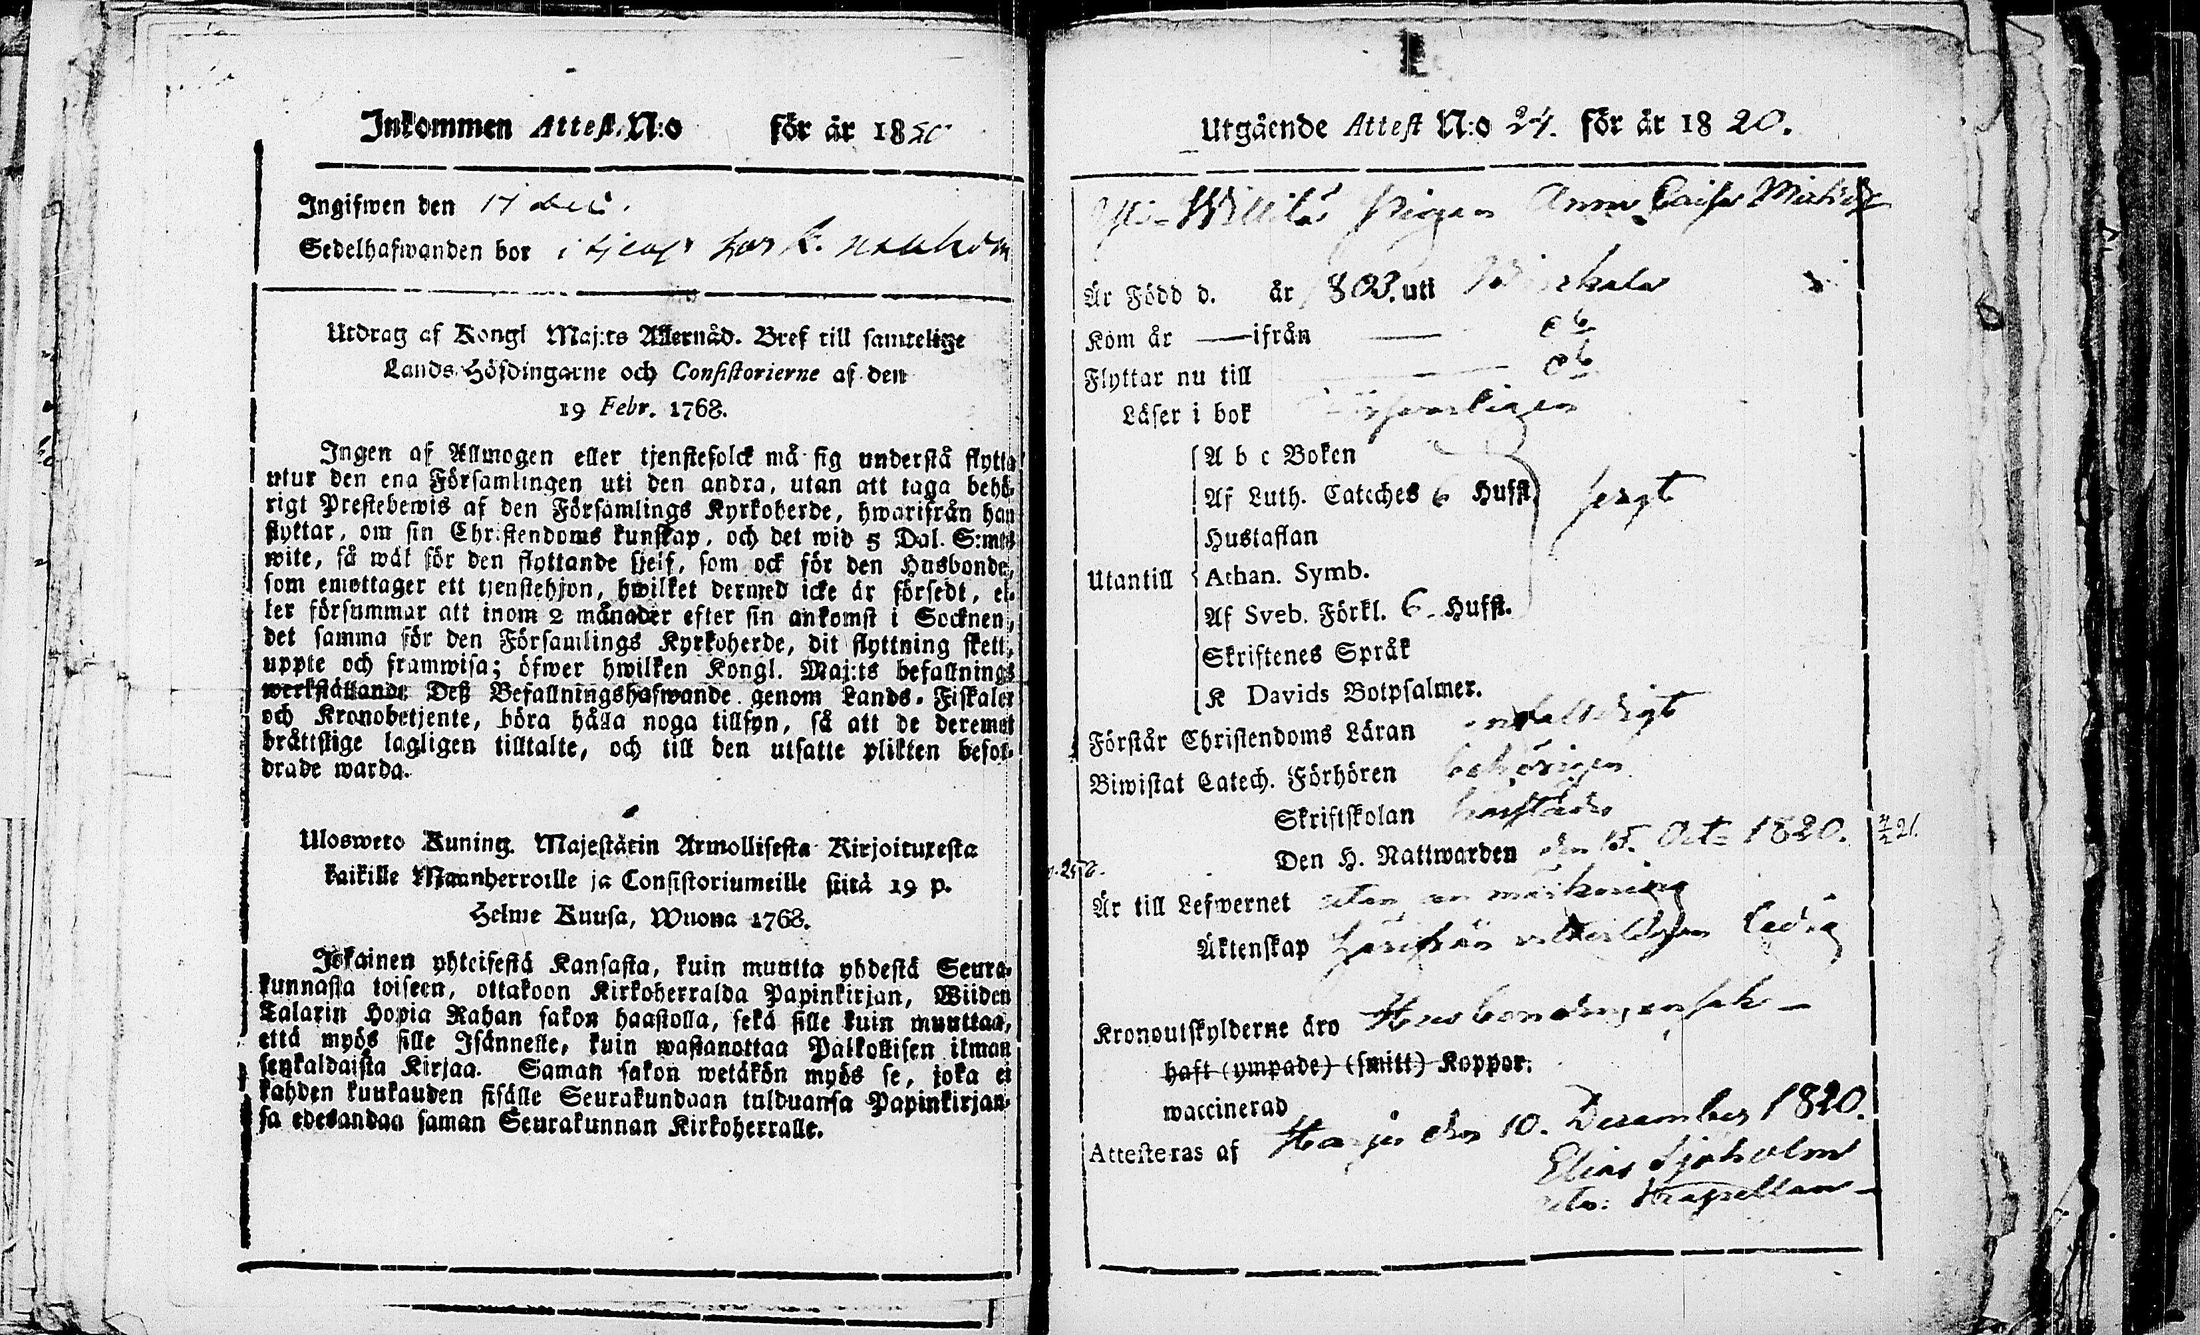 Inkommen Attest. N:o för år 1820
Ingifwen den 17 dec.
Sedelhafwanden bor i tjenst hos
Utdrag af Kongl Maj:ts Allernåd. Bref till samtelige
Lands Höfdingarne och Consistorierne af den
19 Febr. 1768.
Ingen af Allmogen eller tjenstefolck må sig understå flytta
utur den ena Församlingen uti den andra, utan att taga behö-
rigt Prestebewis af den Församlings Kyrkoherde, hwarifrån han
flyttar, om sin Christendoms kunskap, och det wid 5 Dal. S:mts
wite, så wäl för den flyttande sjelf, som ock för den Husbonde,
som emottager ett tjenstehjon, hwilket dermed icke är försedt, el-
ler försummar att inom 2 månader efter sin ankomst i Socknen,
det samma för den Församlings Kyrkoherde, dit flyttning skett,
uppte och framwisa; öfwer hwilken Kongl. Maj:ts befallnings
werkställande Deß Befallningshafwande genom Lands-Fiskaler
och Kronobetjente, böra hålla noga tillsyn, så att de deremot
bråttslige lagligen tilltalte, och till den utsatte plikten befor-
drade warda.
Uloswero Kuning. Majestätin Armollisesta Kirjoituxesta
kaikille Maanherroille ja Consistoriumeille siitä 19 p.
Helme Kuusa, Wuona 1768.
Jokainen yhteisestä Kansasta, kuin muutta yhdestä Seura-
kunnasta toiseen, ottakoon Kirkoherralda Papinkirjan, Wiiden
Talarin Hopia Rahan sakon haastolla, sekä sille kuin muuttaa,
että myös sille Isännelle, kuin wastanottaa Palkollisen ilman
senkaldaista Kirjaa. Saman sakon wetäkön myös se, joka ei
kahden kuukauden sisälle Seurakundaan tulduansa Papinkirjan-
sa edesandaa saman Seurakunnan Kirkoherralle.
Utgående Attest N:o 24. för år 1820.
Pigan Anna Caisa
Är Född d. år 1803. uti
Kom år — ifrån —
Flyttar nu till
Läser i bok försvarligen
A b c Boken
Af Luth. Cateches 6 Hufst. svagt
Hustaflan
Utantill Athan. Symb.
Af Sveb. Förkl. 6 Hufst.
Skriftenes Språk
K Davids Botpsalmer.
Förstår Christendoms Läran enfaldigt
Biwistat Catech. Förhören behörigen
Skriftskolan
Den H. Nattwarden den 15. Oct. 1820.
Är till Lefwernet utan anmärkning
Äktenskap härifrån ledig
Kronoutskylderne äro
haft (ympade) (smitt) Koppor.
waccinerad
Attesteras af Harju den 10. December 1820.
Elias Sjöholm
Kapellan